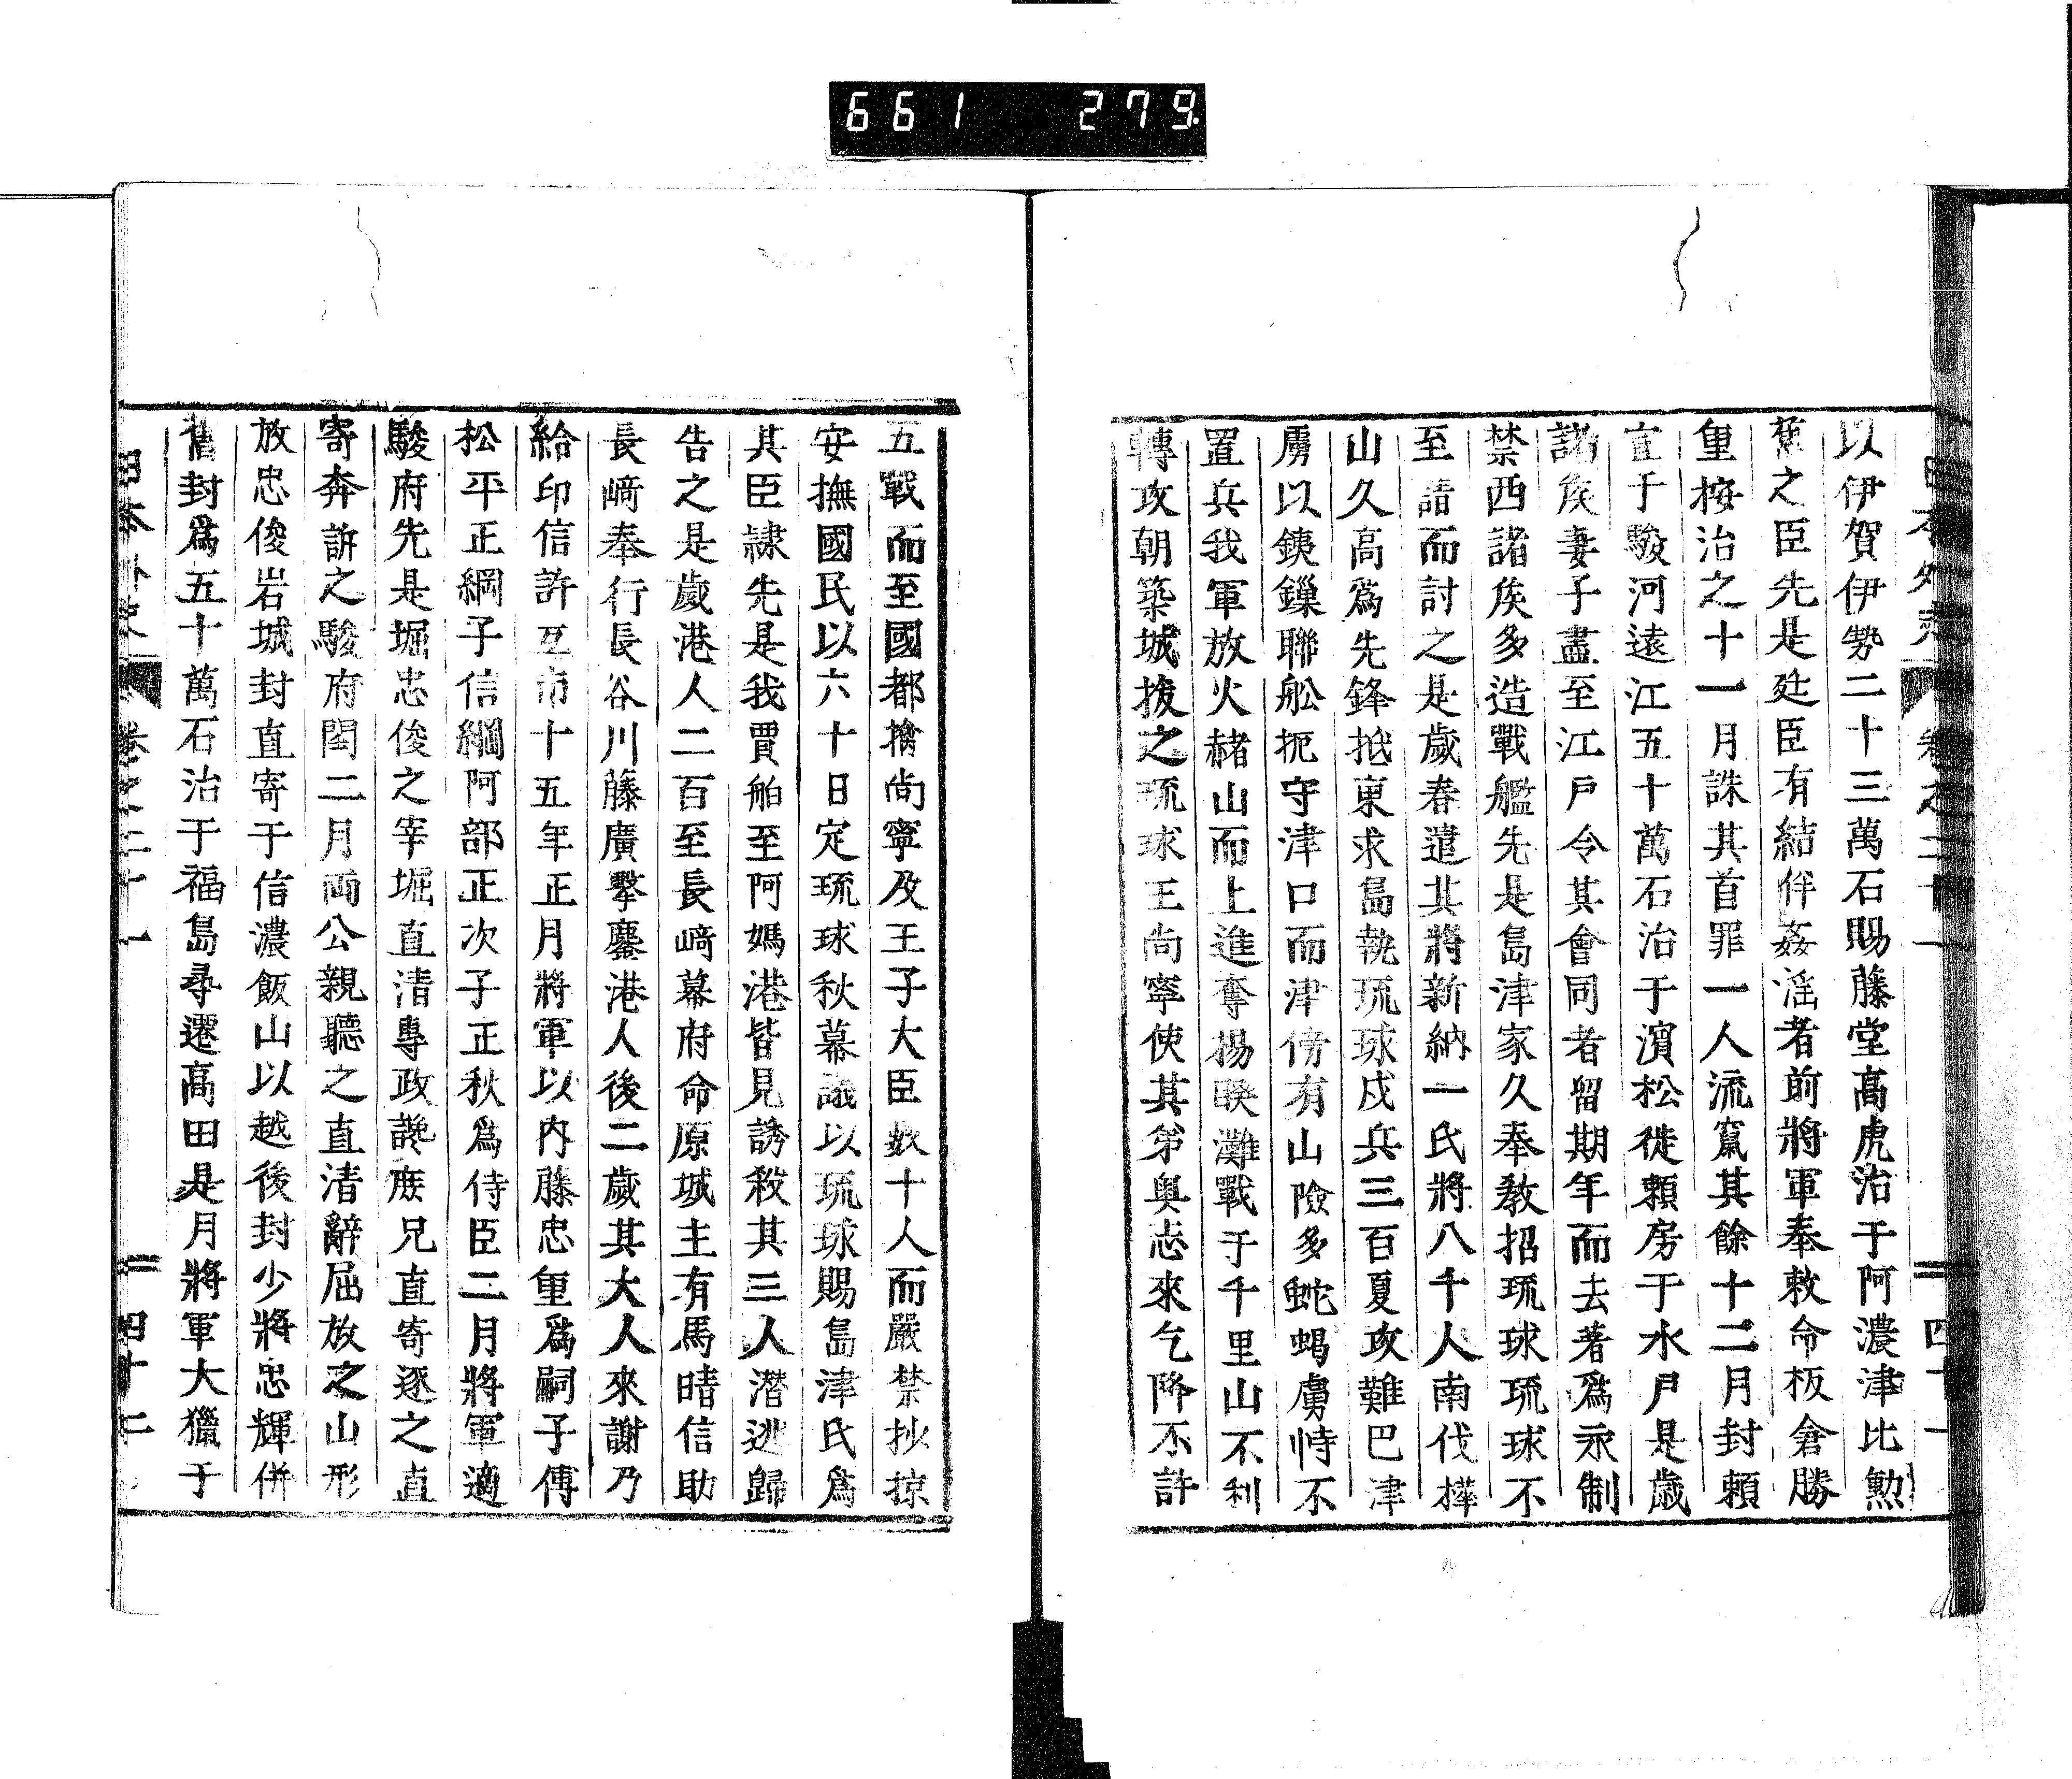 661 279.
日本外史 卷之二十一 四十一
以伊賀伊勢二十三萬石賜藤堂高虎治于阿濃津比勲
舊之臣先是廷臣有結伴姦淫者前將軍奉敕命板倉勝
重按治之十一月誅其首罪一人流竄其餘十二月封賴
宣于駿河遠江五十萬石治于濱松徙賴房于水戶是歲
諸侯妻子盡至江戶令其會同者留期年而去著爲永制
禁西諸侯多造戰艦先是島津家久奉教招琉球琉球不
至請而討之是歲春遣其將新納一氏將八千人南伐樺
山久高爲先鋒抵東求島執琉球戍兵三百夏攻難巴津
虜以銕鏁聯舩扼守津口而津傍有山險多蛇蝎虜恃不
置兵我軍放火赭山而上進奪楊睽灘戰于千里山不利
轉攻朝築城拔之琉球王尚寧使其弟與志來乞降不許
五戰而至國都擒尚寧及王子大臣數十人而嚴禁抄掠
安撫國民以六十日定琉球秋幕議以琉球賜島津氏爲
其臣隷先是我賈舶至阿媽港皆見誘殺其三人潛逃歸
告之是歲港人二百至長﨑幕府命原城主有馬晴信助
長﨑奉行長谷川藤廣擊鏖港人後二歲其大人來謝乃
給印信許互市十五年正月將軍以内藤忠重爲嗣子傳
松平正綱子信綱阿部正次子正秋爲侍臣二月將軍適
駿府先是堀忠俊之宰堀直清專政讒庶兄直寄逐之直
寄奔訴之駿府閏二月兩公親聽之直清辭屈放之山形
放忠俊岩城封直寄于信濃飯山以越後封少將忠輝併
舊封爲五十萬石治于福島尋遷高田是月將軍大獵于
日本外史 卷之二十一 四十二